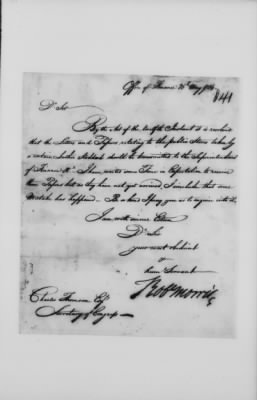 Office of Finance 20th May
141
Dr Sir
By the Act of the twelfth Instant it is resolved
that the Letters and Papers relating to the public Stores taken by
should be transmitted to the Superintendant
of Finance &c. I have waited some Time in Expectation to receive
these Papers but as they have not yet arrived I conclude that some
Mistake has happened. Be so kind I pray you as to enquire into it.
I am with sincere Esteem
Dr Sir
your most obedient
&
humble Servant
Robt Morris
Charles Thomson Esqr
Secretary of Congress